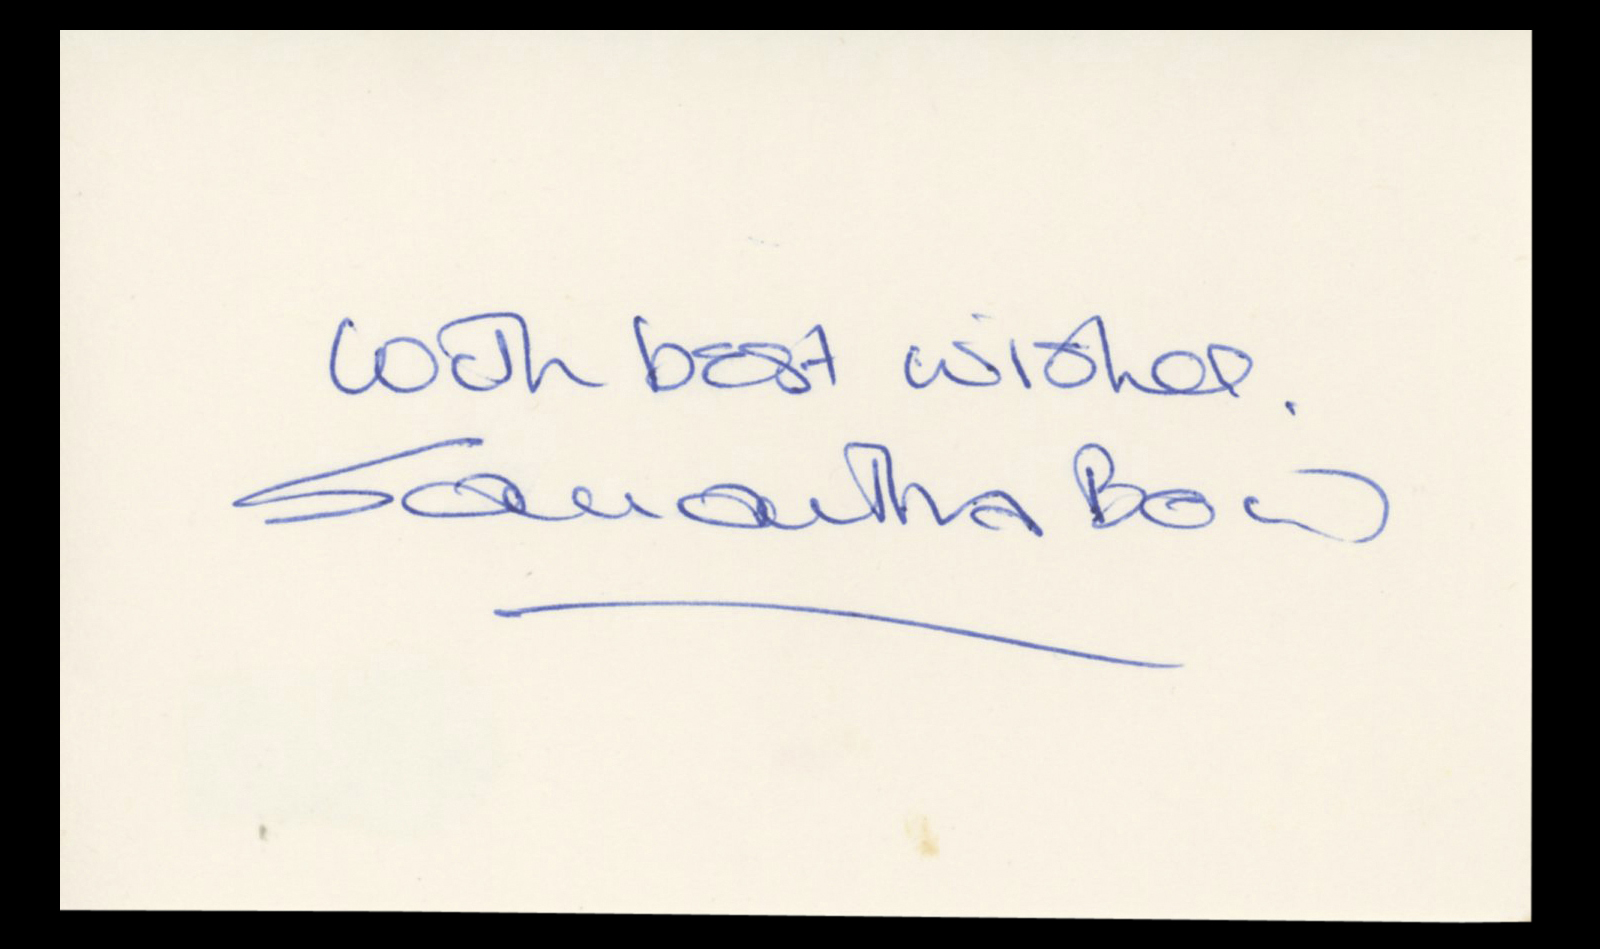 With best wishes.
Samantha Bond